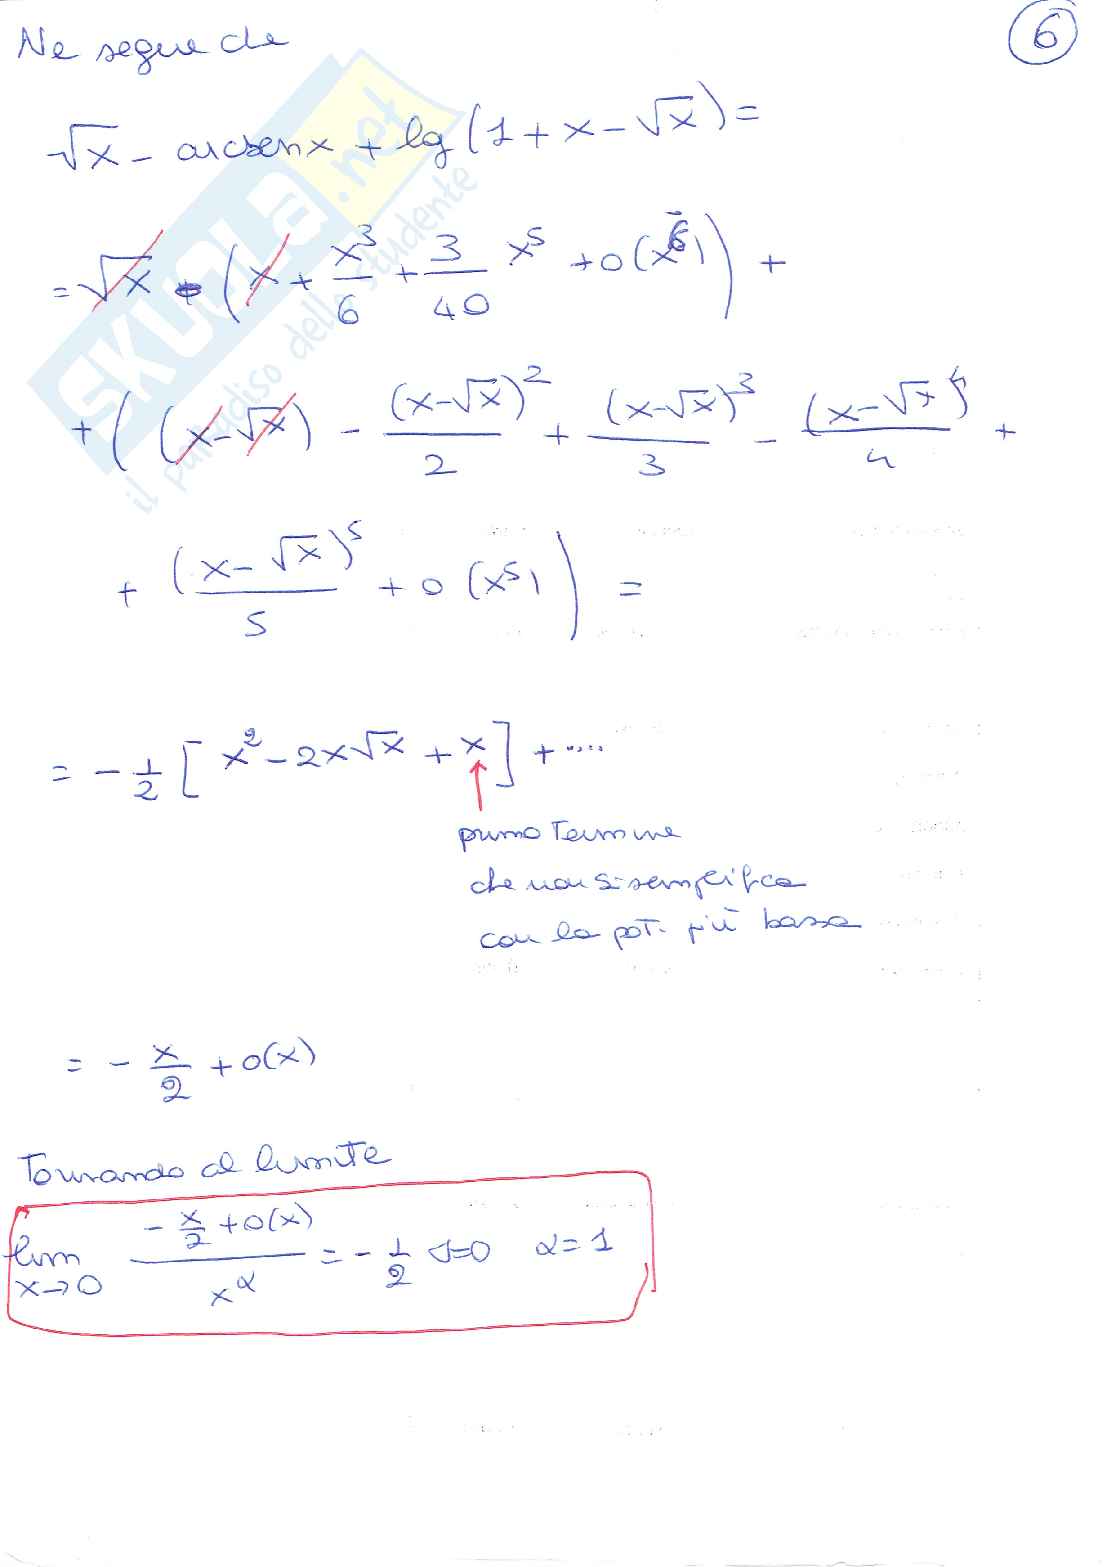 Ne segue che
6
√x - arcsen x + lg (1 + x - √x) =
= √x - (x + x³/6 + 3/40 x⁵ + o(x⁶)) +
+ ((x-√x) - (x-√x)²/2 + (x-√x)³/3 - (x-√x)⁴/4 +
+ (x-√x)⁵/5 + o(x⁵)) =
= - 1/2 [x² - 2x√x + x] + ....
primo termine
che non si semplifica
con la pot. più bassa
= - x/2 + o(x)
Tornando al limite
lim x→0 (-x/2 + o(x))/x^α = - 1/2 s=0 α=1
SKUOLA.net
il paradiso dello studente